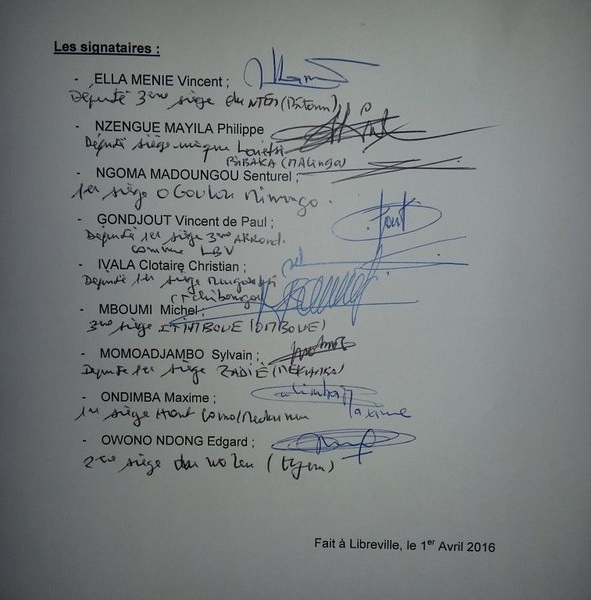 Les signataires :
- ELLA MENIE Vincent ;
Député 3ème siège du NTEM (Bitam)
- NZENGUE MAYILA Philippe
Député siège unique Louetsi
BIBAKA (Malinga)
- NGOMA MADOUNGOU Senturel ;
1er siège Ogoulou Mimongo.
- GONDJOUT Vincent de Paul ;
Député 1er siège 3ème Arrond.
commune LBV
- IVALA Clotaire Christian ;
Député 1er siège
- MBOUMI Michel ;
3ème siège ETIMBOUE (OMBOUE)
- MOMOADJAMBO Sylvain ;
Député 1er siège ZADIÉ (MEKAMBO)
- ONDIMBA Maxime ;
1er siège Haut Como/Medouneu
Maxime
- OWONO NDONG Edgard ;
2ème siège du Woleu (Oyem)
Fait à Libreville, le 1er Avril 2016